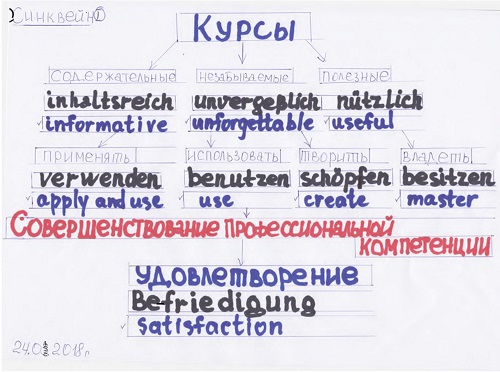 Синквейн
Курсы
содержательные незабываемые полезные
inhaltsreich unvergeßlich nützlich
informative unforgettable useful
применять использовать творить владеть
verwenden benutzen schöpfen besitzen
apply and use use create master
Совершенствование профессиональной
компетенции
удовлетворение
Befriedigung
satisfaction